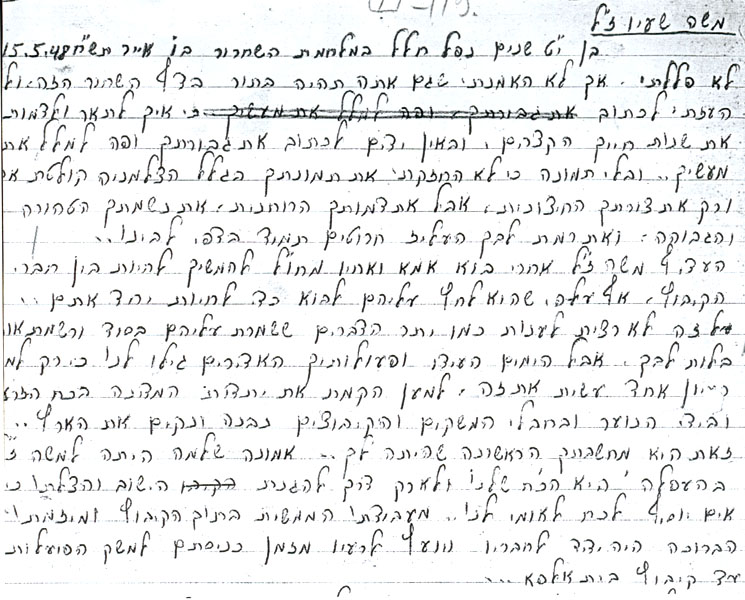 משה שעיו ז"ל
בן י"ט שנים נפל חלל במלחמת השחרור בו' אייר תש"ח 15.5.48
לא פללתי. אך לא האמנתי שגם אתה תהיה בתור בדף השחור הזה ול
העזתי לכתוב את גבורתך ופה למלל את מעשיך כי איך לתאר ולדמות
את שנות חייך הקצרים, ובאין ידים לכתוב את גבורתך ופה למלל את
מעשיך.. ובלי תמונה כי לא החזקתי את תמונתך בגלל הצלמניה קולטת א
ורק את צורתך החיצונית, אבל את דמותך הרוחנית, את נשמתך הטהורה
והגבוהה, ואת רמת לבך העליז חרוטים תמיד בדפי לבינו..
העדיף משה ז"ל אחרי בוא אמא ואחיו מחו"ל להמשיך להיות בין חברי
הקיבוץ, אף עלפי שהוא לחץ עליהם לבוא כדי לחיות יחד אתם..
על זה לא רצית לענות כמו יתר הדברים ששמרת עליהם בסוד ורשמת או
בילות לבך. אבל הימים העידו ופעולותיך האדירים גילו לנו כי רק למ
רעיון אחד עשית את זה, למען הקמת את יתדות המדינה בכח הזרו
ובידי הנוער ובחבלי המשקים והקיבוצים נבנה ונקים את הארץ..
זאת היא מחשבתך הראשונה שהיתה לך.. אמונה שלמה היתה למשה ז
בהעפלה היא הכח שלנו ולארק דרך להגנת הקיבו הישוב והצלתו כי
אים יוסיף לכח לאומי לנו.. מעבודתו הממשית בתוך הקיבוץ ומיזמתו
הברוכה היה יהד לחבריו ויועץ לרעיו מזמן כניסתם למשק הפועלות
עד קיבוץ בית אלפא...